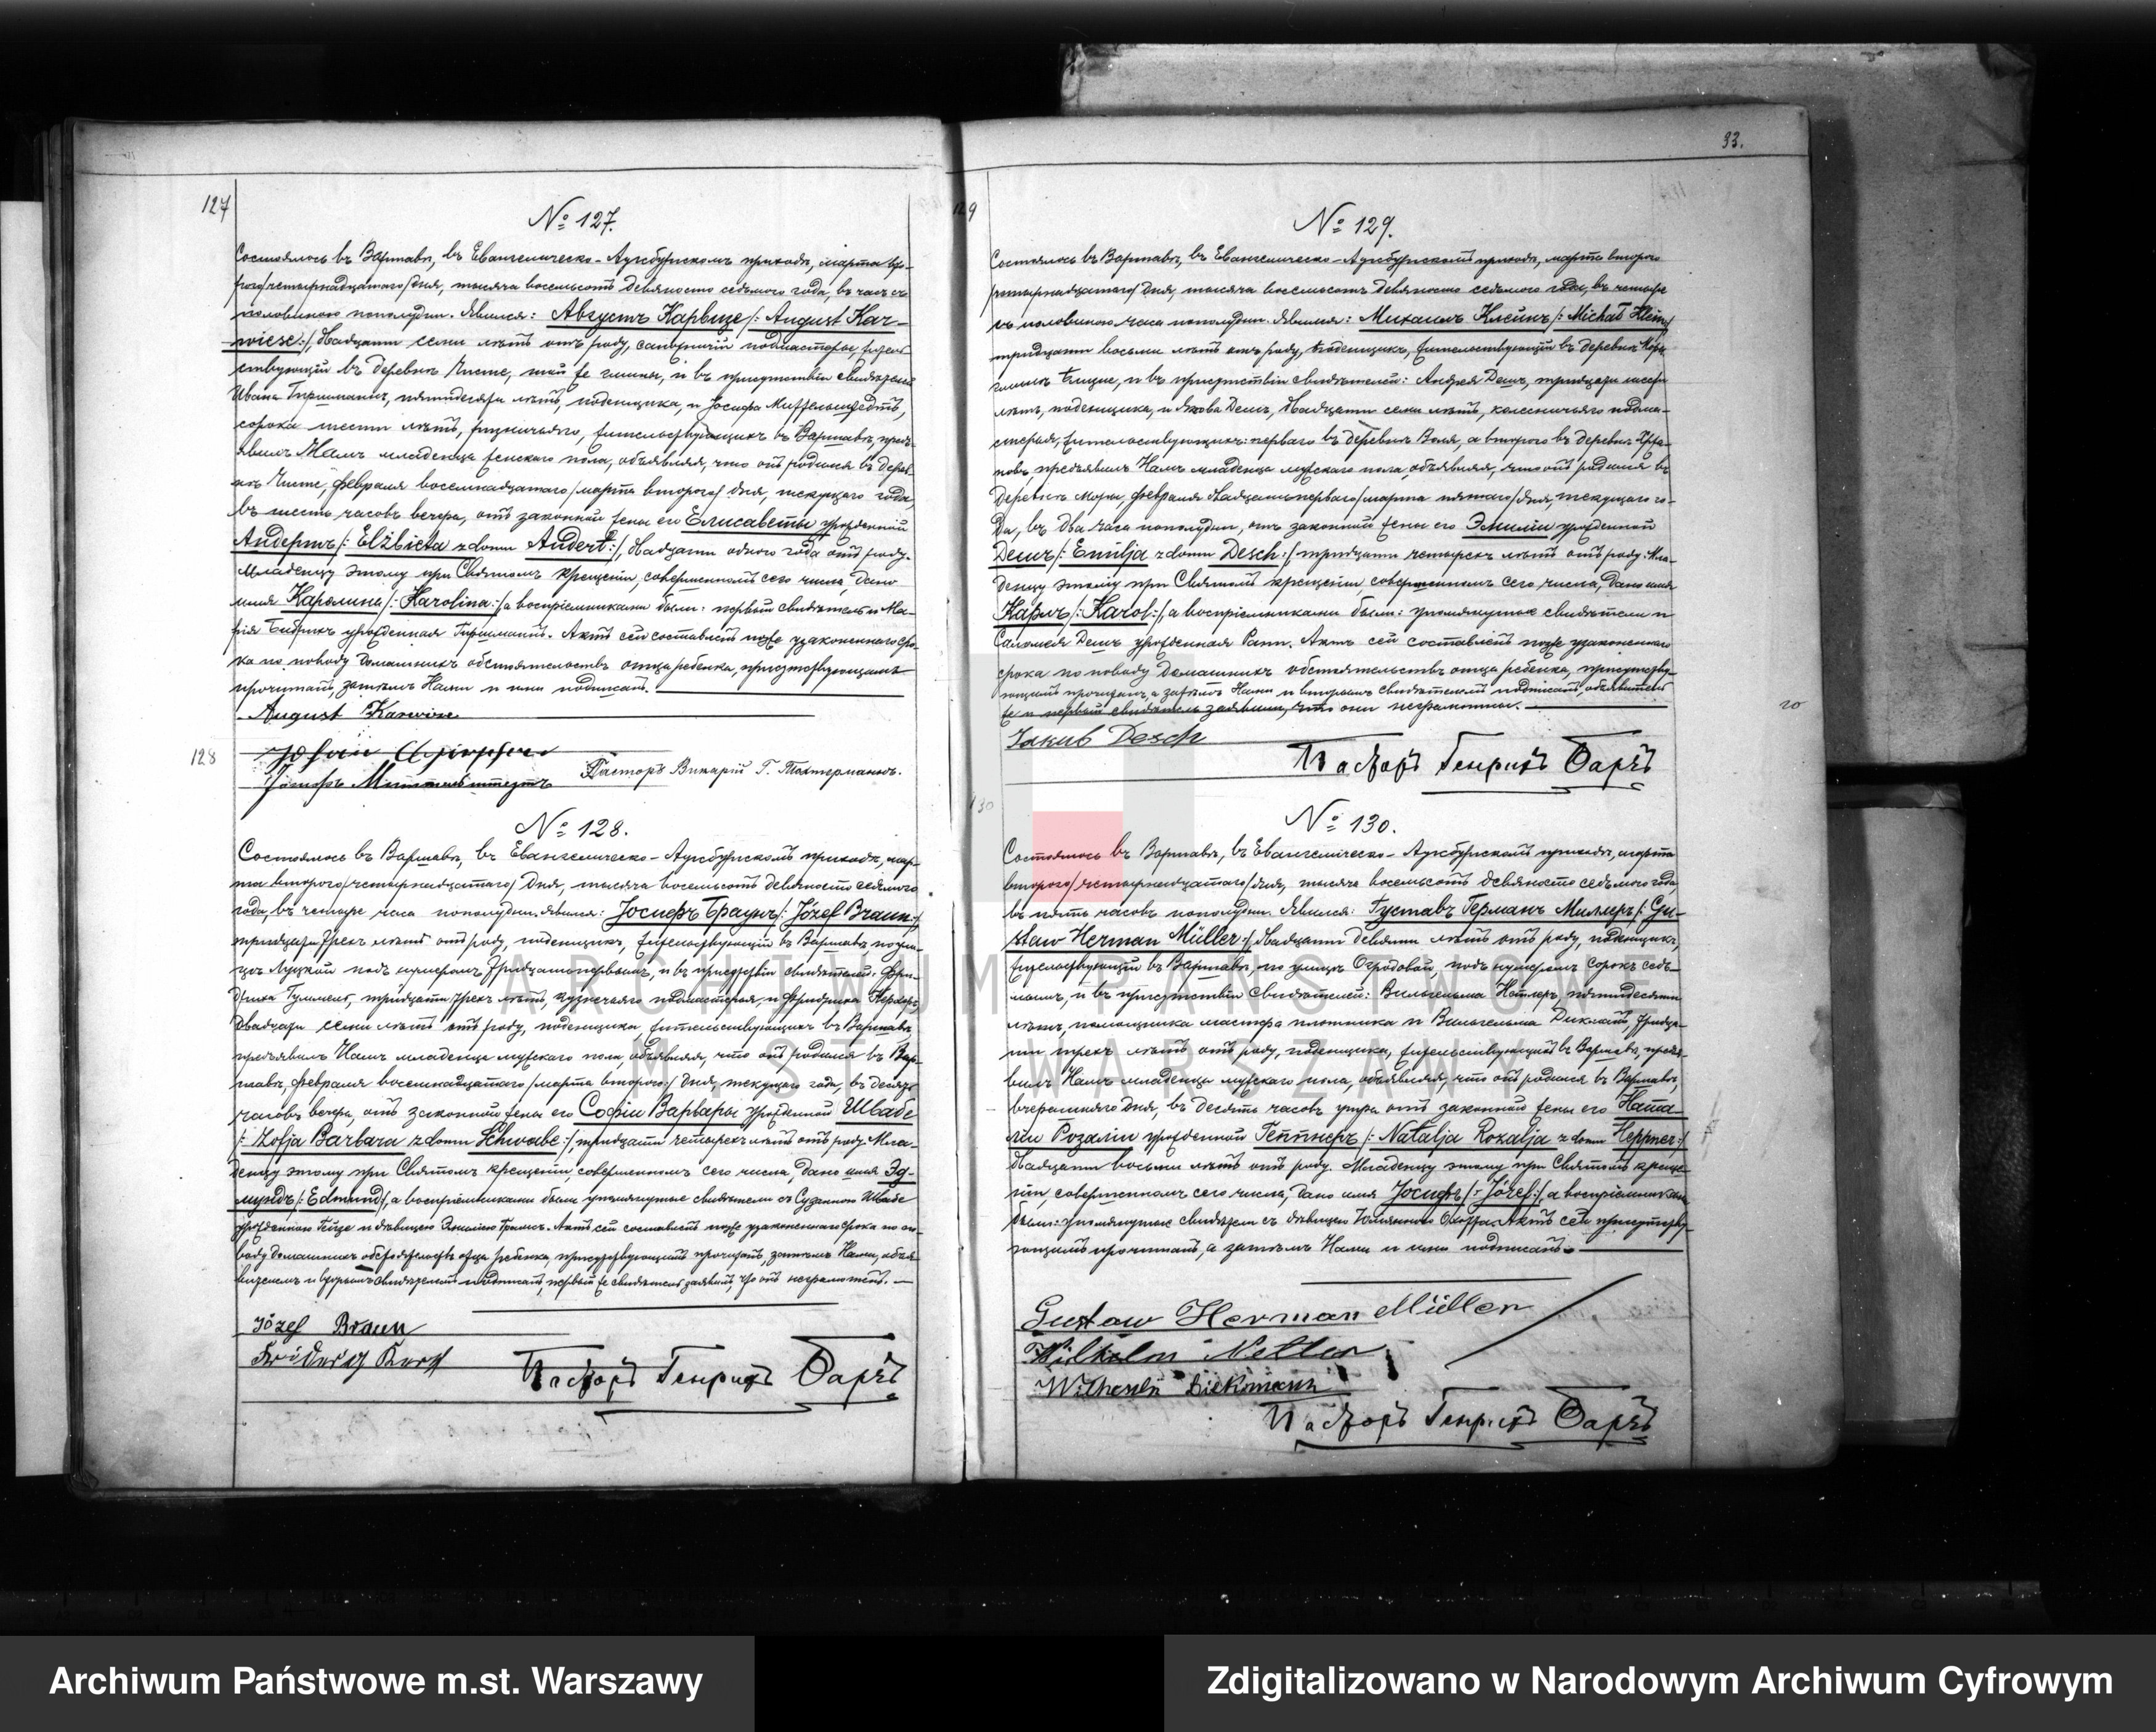 33.
127
№ 127.
Состоялось въ Варшавѣ, въ Евангелическо-Аугсбургскомъ приходѣ, марта вто-
раго/четырнадцатаго/ дня, тысяча восемьсотъ девяносто седьмого года, въ часъ съ
половиною пополудни. Явился: Августъ Карвизе /: August Kar-
wiese :/, двадцати семи лѣтъ отъ роду, подмастерье, житель-
ствующій въ деревнѣ Чисте, той же гмины, и въ присутствіи свидѣтелей
Ивана лѣтъ, поденщика, и Іосифа
сорока шести лѣтъ, жительствующихъ въ Варшавѣ, предъ-
явилъ Намъ младенца женскаго пола, объявляя, что онъ родился въ дерев-
нѣ Чисте, февраля восемнадцатаго/марта второго/ дня, текущаго года,
въ шесть часовъ вечера, отъ законной жены его Елисаветы урожденной
Андертъ /: Elżbieta z domu Andert :/, двадцати одного года отъ роду.
Младенцу этому при Святомъ крещеніи, совершенномъ сего числа, дано
имя Каролина /: Karolina :/ а воспріемниками были: первый свидѣтель и Ма-
рія урожденная Актъ сей составленъ позже узаконеннаго сро-
ка по поводу домашнихъ обстоятельствъ отца ребенка, присутствующимъ
прочитанъ, затѣмъ Нами и ими подписанъ.
August Karwise
128
Пасторъ Викарій Г.
№ 128.
Состоялось въ Варшавѣ, въ Евангелическо-Аугсбургскомъ приходѣ, мар-
та второго/четырнадцатаго/ дня, тысяча восемьсотъ девяносто седьмого
года, въ четыре часа пополудни. Явился: Іосифъ Браунъ /: Józef Braun :/
тридцати трехъ лѣтъ отъ роду, поденщикъ, жительствующій въ Варшавѣ по ули-
цѣ Луцкой подъ нумеромъ тридцать первымъ, и въ присутствіи свидѣтелей: Фри-
дриха тридцати трехъ лѣтъ, кузнечнаго подмастерья, и Фридриха
двадцати семи лѣтъ отъ роду, поденщика, жительствующихъ въ Варшавѣ,
предъявилъ Намъ младенца мужскаго пола, объявляя, что онъ родился въ Вар-
шавѣ, февраля восемнадцатаго /марта второго/ дня, текущаго года, въ десять
часовъ вечера, отъ законной жены его Софіи Варвары урожденной Швабе
/: Zofja Barbara z domu Schwabe :/, тридцати четырехъ лѣтъ отъ роду. Мла-
денцу этому при Святомъ крещеніи, совершенномъ сего числа, дано имя Эд-
мундъ /: Edmund :/, а воспріемниками были упомянутые свидѣтели съ Сузанною Швабе
урожденною и дѣвицею Актъ сей составленъ позже узаконеннаго срока по по-
воду домашнихъ обстоятельствъ отца ребенка, присутствующимъ прочитанъ, затѣмъ Нами, объя-
вителемъ и вторымъ свидѣтелемъ подписанъ, первый же свидѣтель заявилъ, что онъ неграмотенъ.
Józef Braun
Пасторъ Генрихъ
129
№ 129.
Состоялось въ Варшавѣ, въ Евангелическо-Аугсбургскомъ приходѣ, марта второго
/четырнадцатаго/ дня, тысяча восемьсотъ девяносто седьмого года, въ четыре
съ половиною часа пополудни. Явился: Михаилъ Клейнъ /: Michał Klein :/
тридцати восьми лѣтъ отъ роду, поденщикъ, жительствующій въ деревнѣ Моры
гмины и въ присутствіи свидѣтелей: Андрея Дешъ, тридцати шести
лѣтъ, поденщика, и Якова Дешъ, двадцати семи лѣтъ, подма-
стерья, жительствующихъ: перваго въ деревнѣ Воля, а второго въ деревнѣ
предъявилъ Намъ младенца мужскаго пола, объявляя, что онъ родился въ
деревнѣ Моры, февраля двадцать перваго/марта пятаго/ дня, текущаго го-
да, въ два часа пополудни, отъ законной жены его Эмиліи урожденной
Дешъ /: Emilja z domu Desch :/ тридцати четырехъ лѣтъ отъ роду. Мла-
денцу этому при Святомъ крещеніи, совершенномъ сего числа, дано имя
Карлъ /: Karol :/, а воспріемниками были: упомянутые свидѣтели и
Саломея Дешъ урожденная Актъ сей составленъ позже узаконеннаго
срока по поводу домашнихъ обстоятельствъ отца ребенка, присутству-
ющимъ прочитанъ, а затѣмъ Нами и вторымъ свидѣтелемъ подписанъ, объявитель
же и первый свидѣтель заявили, что они неграмотны.
Jakub Desch
Пасторъ Генрихъ
130
№ 130.
Состоялось въ Варшавѣ, въ Евангелическо-Аугсбургскомъ приходѣ, марта
второго/четырнадцатаго/ дня, тысяча восемьсотъ девяносто седьмого года,
въ пять часовъ пополудни. Явился: Густавъ Германъ Миллеръ /: Gu-
staw Herman Müller :/, двадцати девяти лѣтъ отъ роду, поденщикъ,
жительствующій въ Варшавѣ, по улицѣ Огродовой, подъ нумеромъ сорокъ седь-
мымъ, и въ присутствіи свидѣтелей: Вильгельма пятидесяти
лѣтъ, помощника мастера плотника и Вильгельма Дикманъ, тридца-
ти трехъ лѣтъ отъ роду, поденщика, жительствующихъ въ Варшавѣ, предъя-
вилъ Намъ младенца мужскаго пола, объявляя, что онъ родился въ Варшавѣ,
вчерашняго дня, въ десять часовъ утра отъ законной жены его Ната-
ліи Розаліи урожденной Геппнеръ /: Natalja Rozalja z domu Heppner :/
двадцати восьми лѣтъ отъ роду. Младенцу этому при Святомъ креще-
ніи, совершенномъ сего числа, дано имя Іосифъ /: Józef :/, а воспріемниками
были: упомянутые свидѣтели съ дѣвицею Актъ сей присутству-
ющимъ прочитанъ, а затѣмъ Нами и ими подписанъ.
Gustaw Herman Müller
Wilhelm
Wilhelm Diekmann
Пасторъ Генрихъ
ARCHIWUM PAŃSTWOWE
M. ST. WARSZAWY
Archiwum Państwowe m.st. Warszawy
Zdigitalizowano w Narodowym Archiwum Cyfrowym